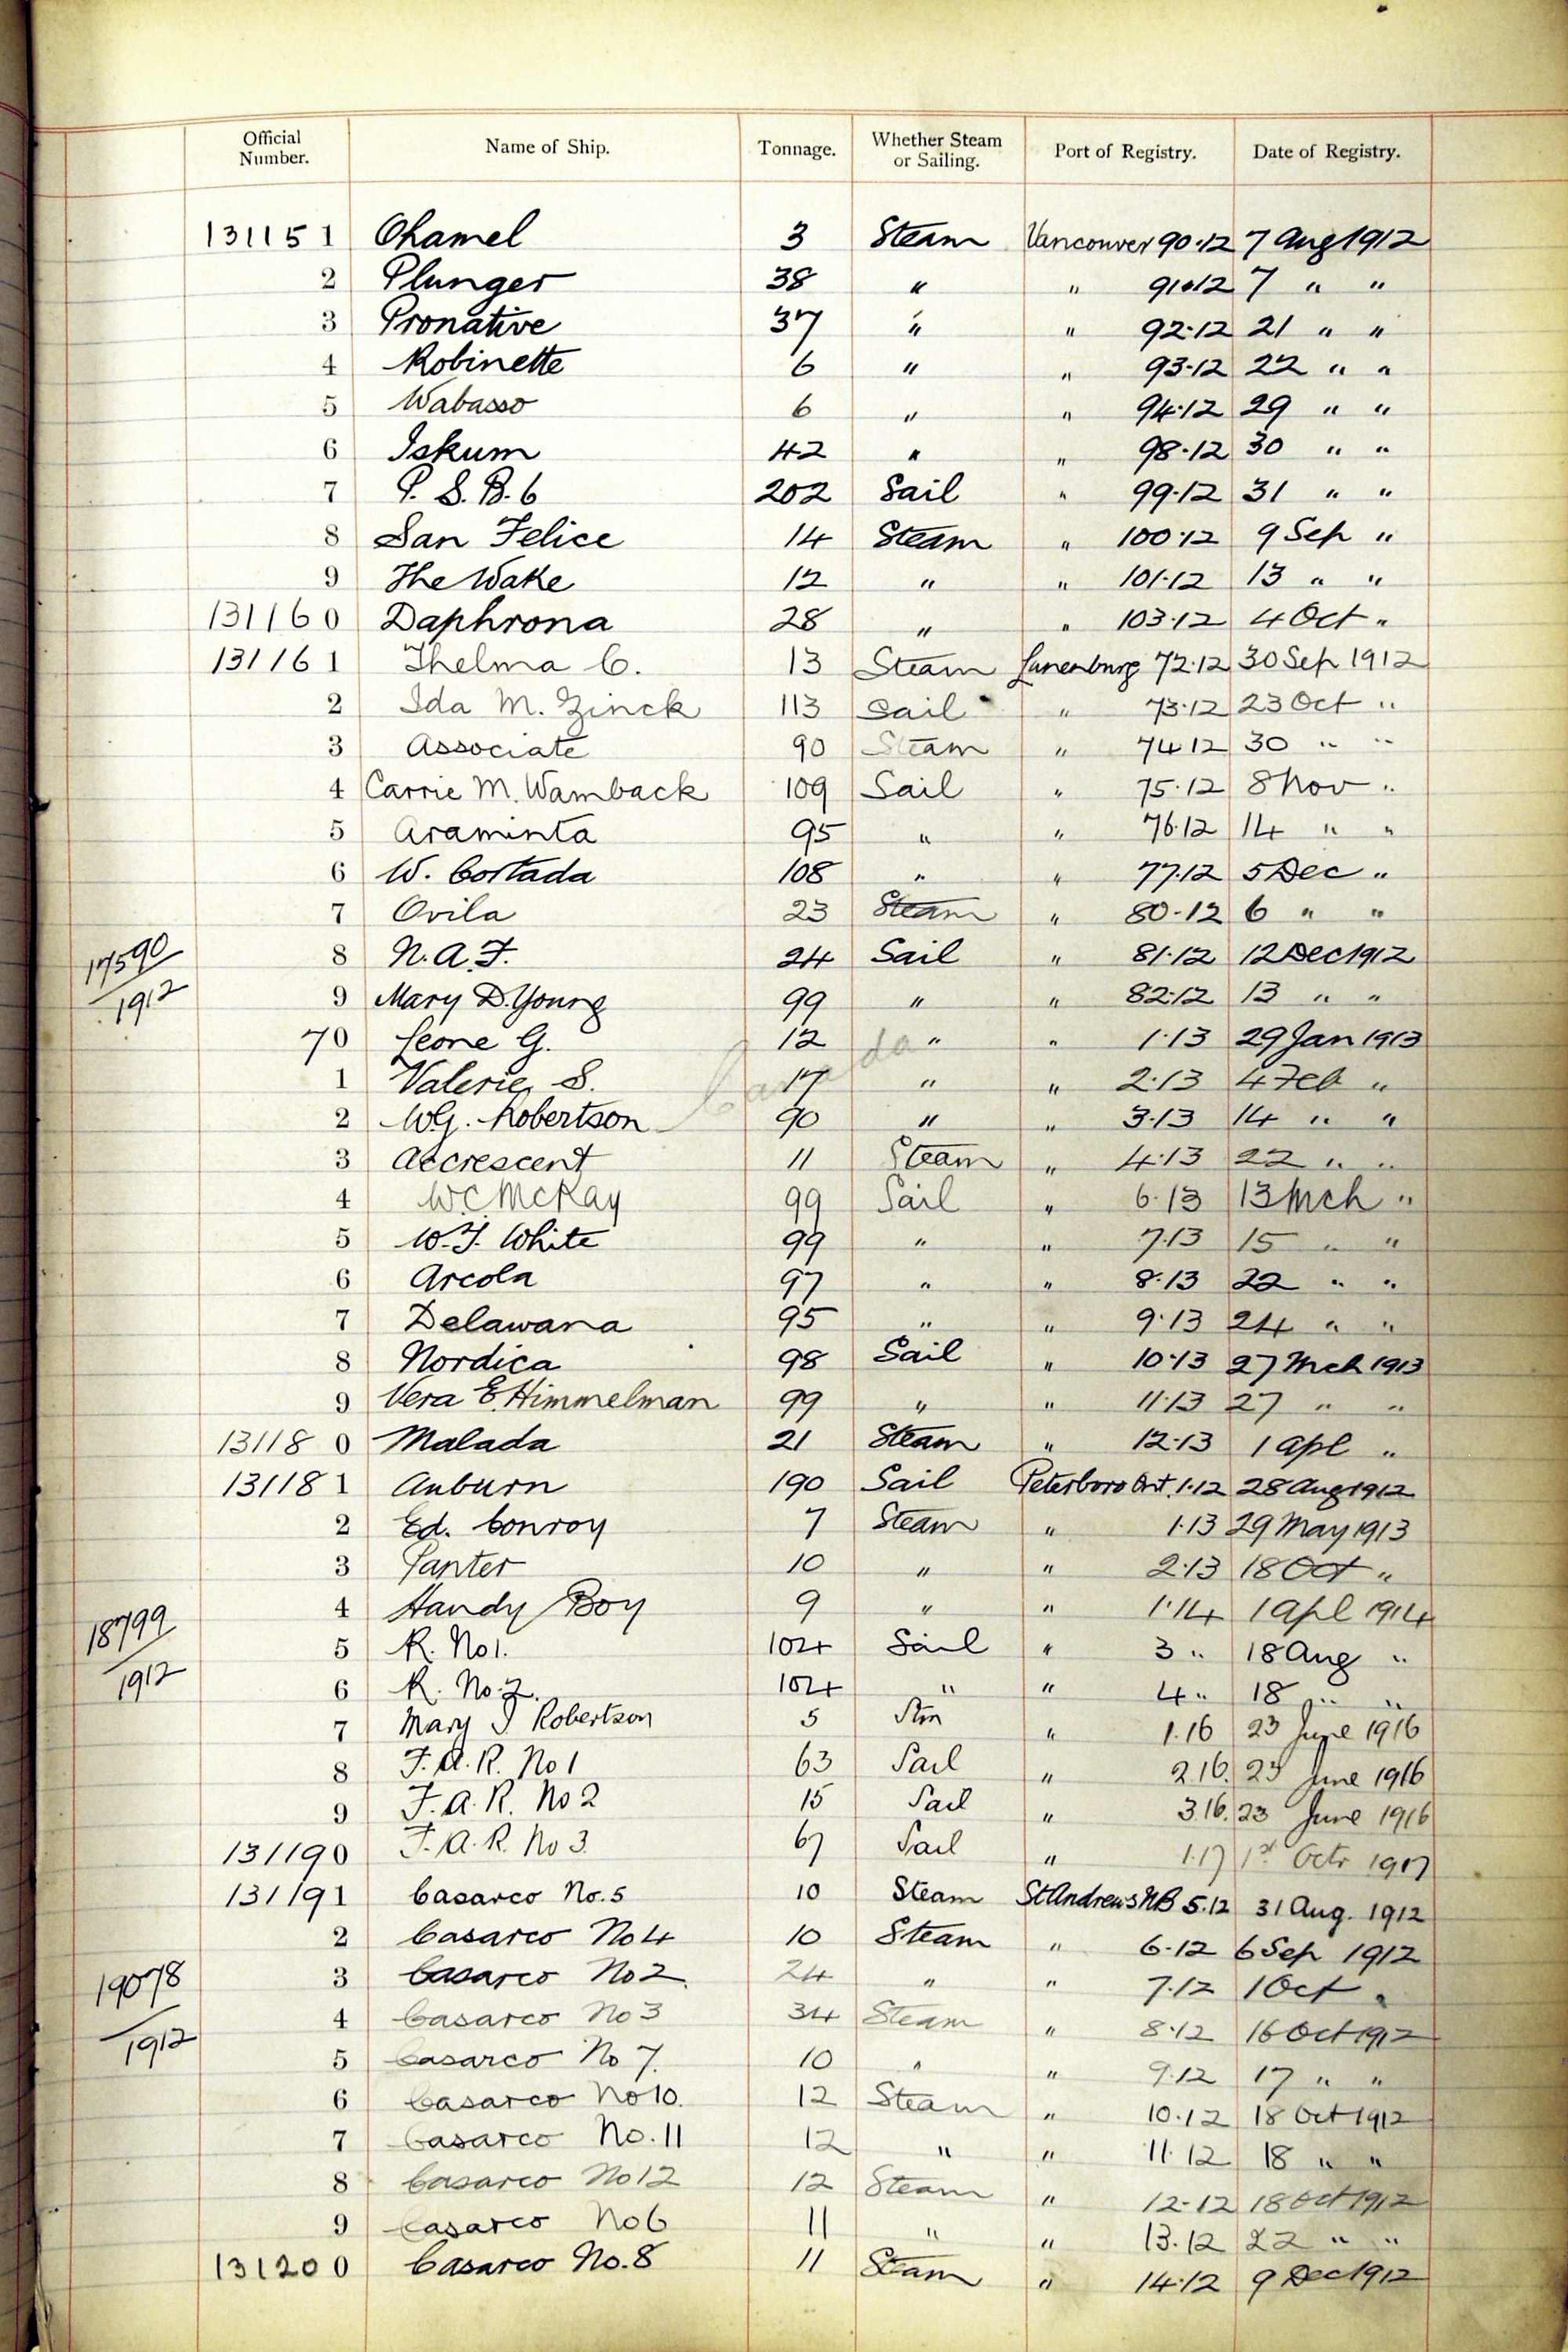 Official Number. Name of Ship. Tonnage. Whether Steam or Sailing. Port of Registry. Date of Registry.
131151 Chamel 3 Steam Vancouver 90.12 7 Aug 1912
2 Plunger 38 " " 91.12 7 " "
3 Pronative 37 " " 92.12 21 " "
4 Robinette 6 " " 93.12 22 " "
5 Wabasso 6 " " 94.12 29 " "
6 Iskum 42 " " 98.12 30 " "
7 P. S. B. 6 202 Sail " 99.12 31 " "
8 San Felice 14 Steam " 100.12 9 Sep "
9 The Wake 12 " " 101.12 13 " "
131160 Daphrona 28 " " 103.12 4 Oct "
131161 Thelma C. 13 Steam Lunenburg 72.12 30 Sep 1912
2 Ida M. Zinck 113 Sail " 73.12 23 Oct "
3 Associate 90 Steam " 74 12 30 " "
4 Carrie M. Wamback 109 Sail " 75.12 8 Nov "
5 Araminta 95 " " 76.12 14 " "
6 W. Cortada 108 " " 77.12 5 Dec "
7 Ovila 23 Steam " 80.12 6 " "
17590/1912 8 N. A. F. 24 Sail " 81.12 12 Dec 1912
9 Mary D. Young 99 " " 82.12 13 " "
70 Leone G. 12 " " 1.13 29 Jan 1913
Canada
1 Valerie S. 17 " " 2.13 4 Feb "
2 W.G. Robertson 90 " " 3.13 14 " "
3 Accrescent 11 Steam " 4.13 22 " "
4 W.C. McKay 99 Sail " 6.13 13 Mch "
5 W. T. White 99 " " 7.13 15 " "
6 Arcola 97 " " 8.13 22 " "
7 Delawana 95 " " 9.13 24 " "
8 Nordica 98 Sail " 10.13 27 Mch 1913
9 Vera E. Himmelman 99 " " 11.13 27 " "
131180 Malada 21 Steam " 12.13 1 Apl "
131181 Auburn 190 Sail Peterboro Ont. 1.12 28 Aug 1912
2 Ed. Conroy 7 Steam " 1.13 29 May 1913
3 Panter 10 " " 2.13 18 Oct "
18799/1912 4 Handy Boy 9 " " 1.14 1 Apl 1914
5 R. No 1. 104 Sail " 3 " 18 Aug "
6 R. No. 2. 104 " " 4 " 18 " "
7 Mary J Robertson 5 Stm " 1.16 23 June 1916
8 F. A. R. No 1 63 Sail " 2.16. 23 June 1916
9 F. A. R. No 2 15 Sail " 3.16. 23 June 1916
131190 F. A. R. No 3 67 Sail " 1.17 1st Octr 1917
131191 Casarco No. 5 10 Steam St Andrews NB 5.12 31 Aug. 1912
2 Casarco No 4 10 Steam " 6.12 6 Sep 1912
19078/1912 3 Casarco No 2. 24 " " 7.12 1 Oct "
4 Casarco No 3 34 Steam " 8.12 16 Oct 1912
5 Casarco No 7. 10 " " 9.12 17 " "
6 Casarco No 10. 12 Steam " 10.12 18 Oct 1912
7 Casarco No. 11 12 " " 11.12 18 " "
8 Casarco No 12 12 Steam " 12.12 18 Oct 1912
9 Casarco No 6 11 " " 13.12 22 " "
131200 Casarco No. 8 11 Steam " 14.12 9 Dec 1912